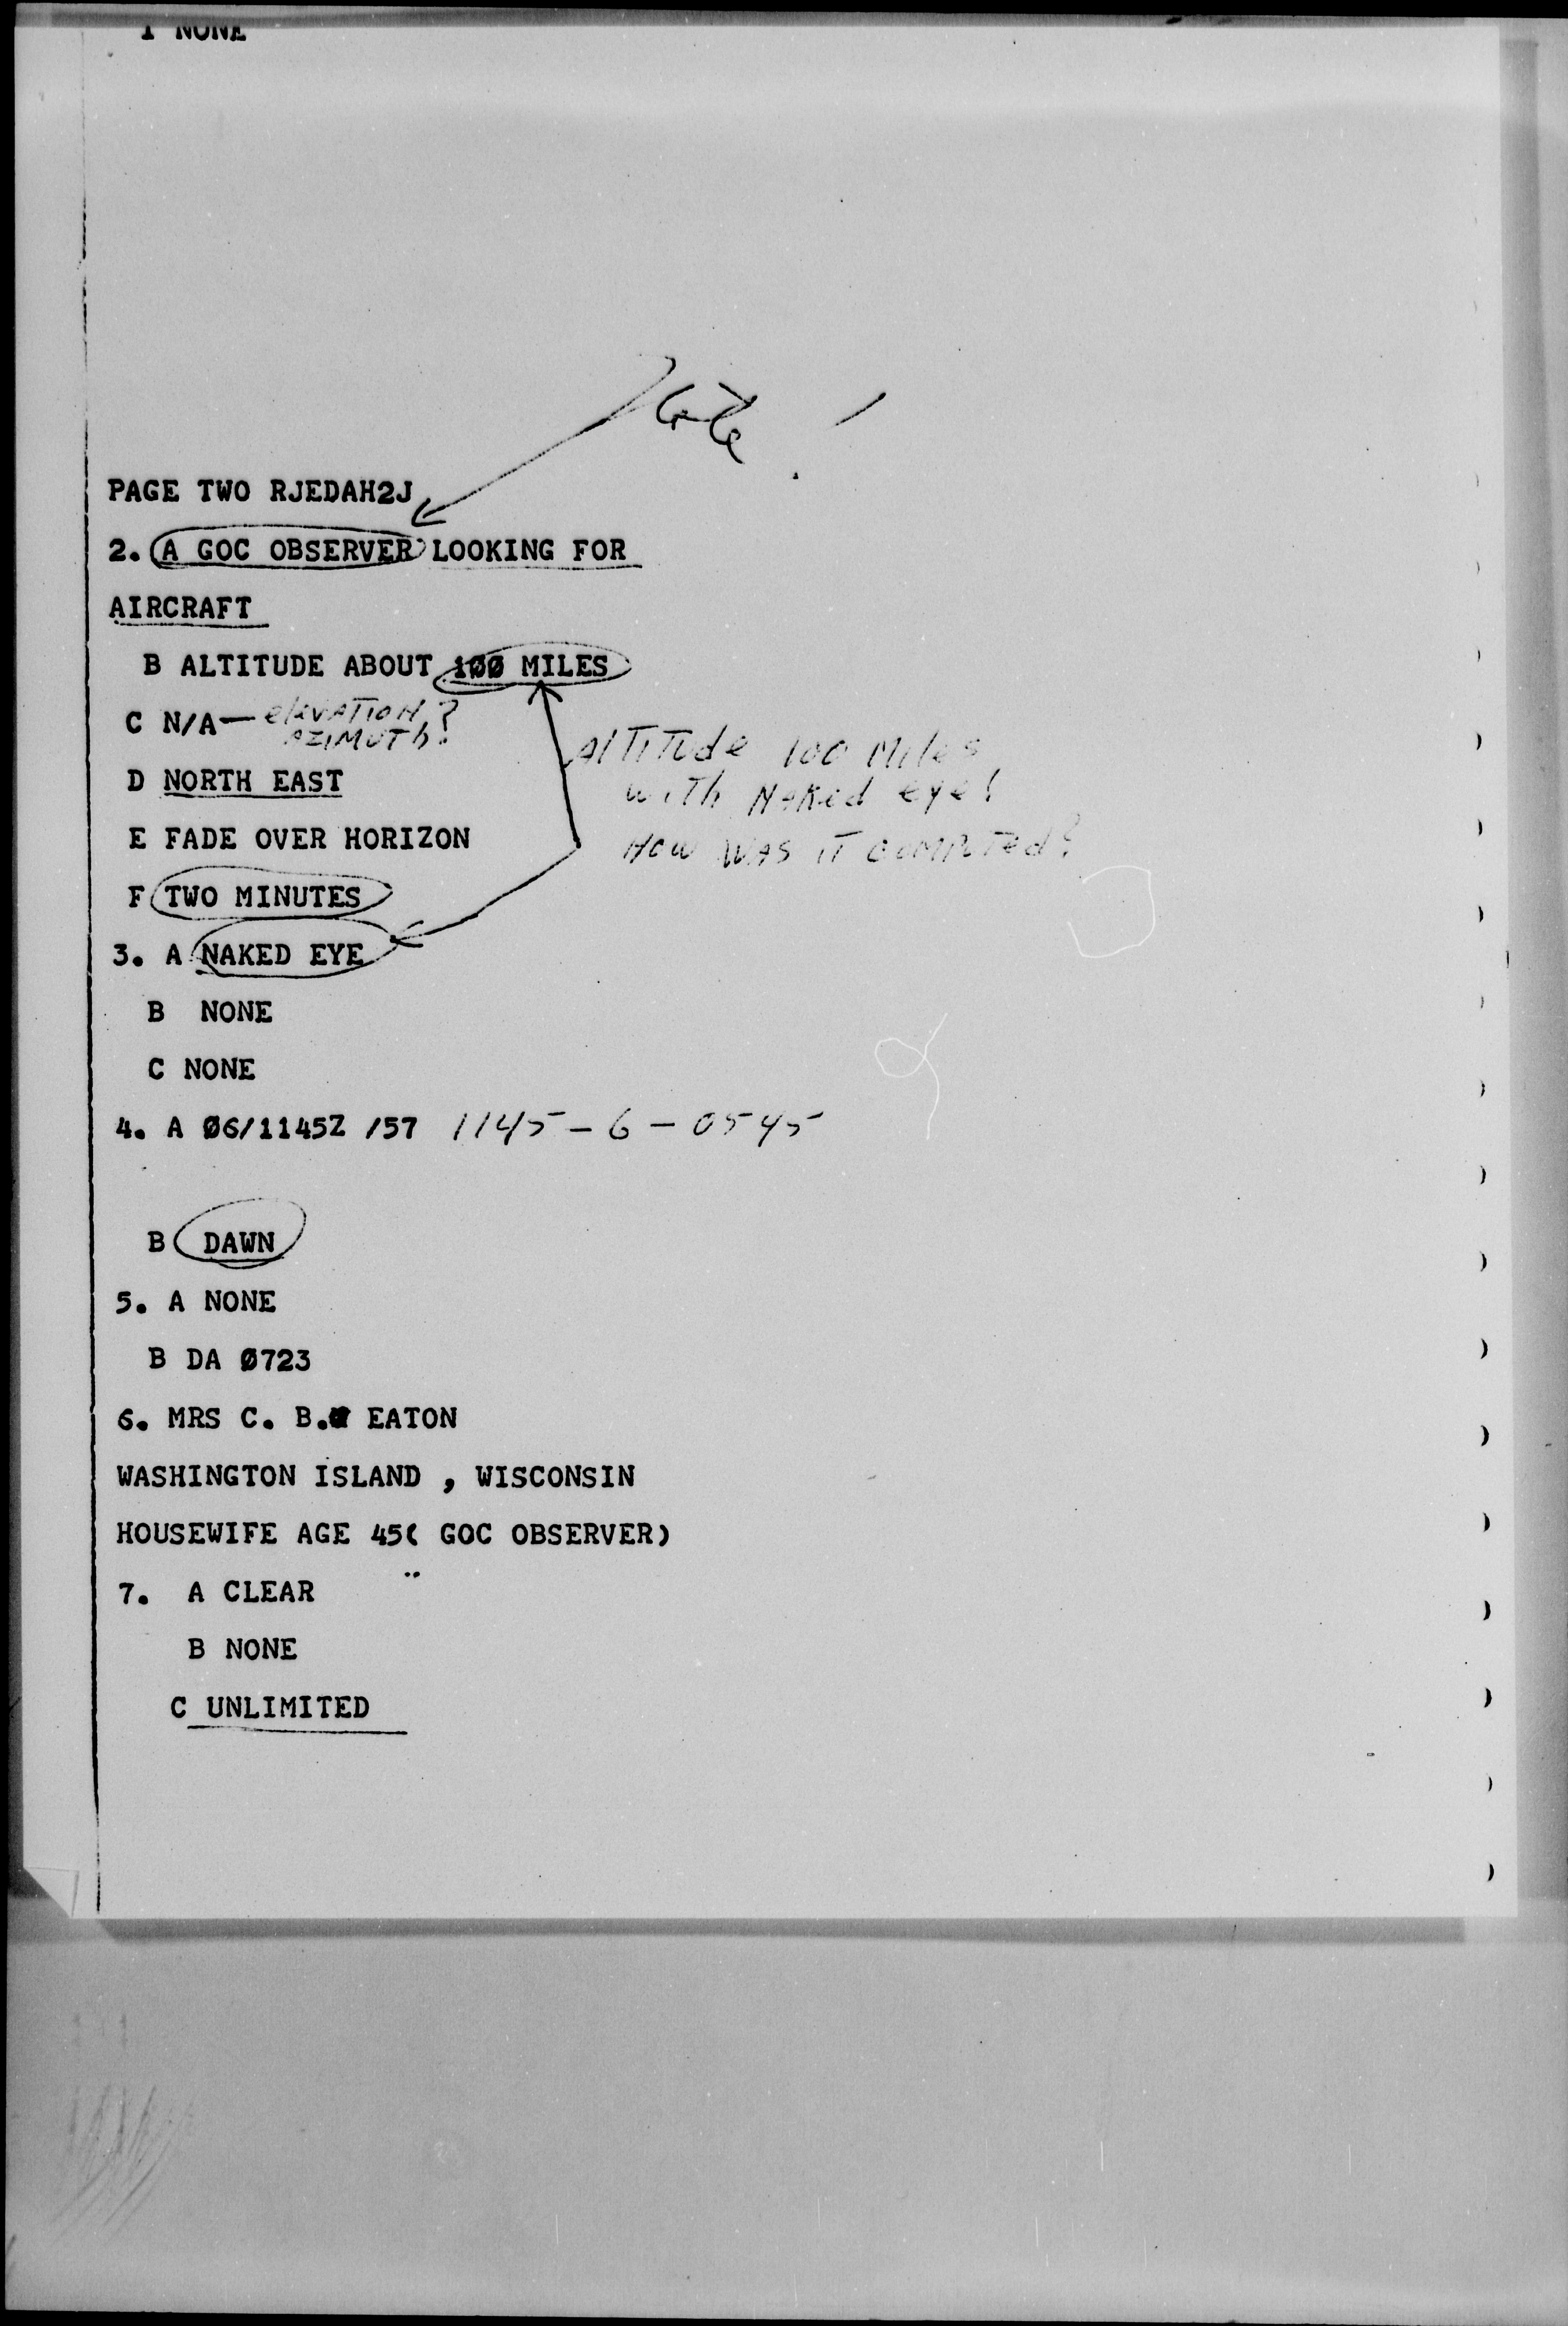 I NONE
Note!
PAGE TWO RJEDAH2J
2. A GOC OBSERVER LOOKING FOR
AIRCRAFT
B ALTITUDE ABOUT 1ØØ MILES
C N/A— elevation?
azimuth?
D NORTH EAST
Altitude 100 Miles
with Naked eye!
How was it computed?
E FADE OVER HORIZON
F TWO MINUTES
3. A NAKED EYE
B NONE
C NONE
4. A Ø6/1145Z /57 1145 – 6 – 0545
B DAWN
5. A NONE
B DA Ø723
6. MRS C. B. EATON
WASHINGTON ISLAND , WISCONSIN
HOUSEWIFE AGE 45( GOC OBSERVER)
7. A CLEAR
B NONE
C UNLIMITED